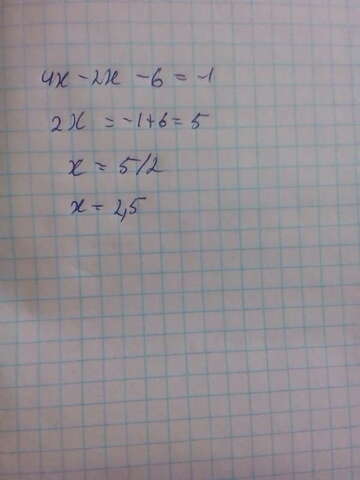 4x - 2x - 6 = -1
2x = -1+6 = 5
x = 5/2
x = 2,5